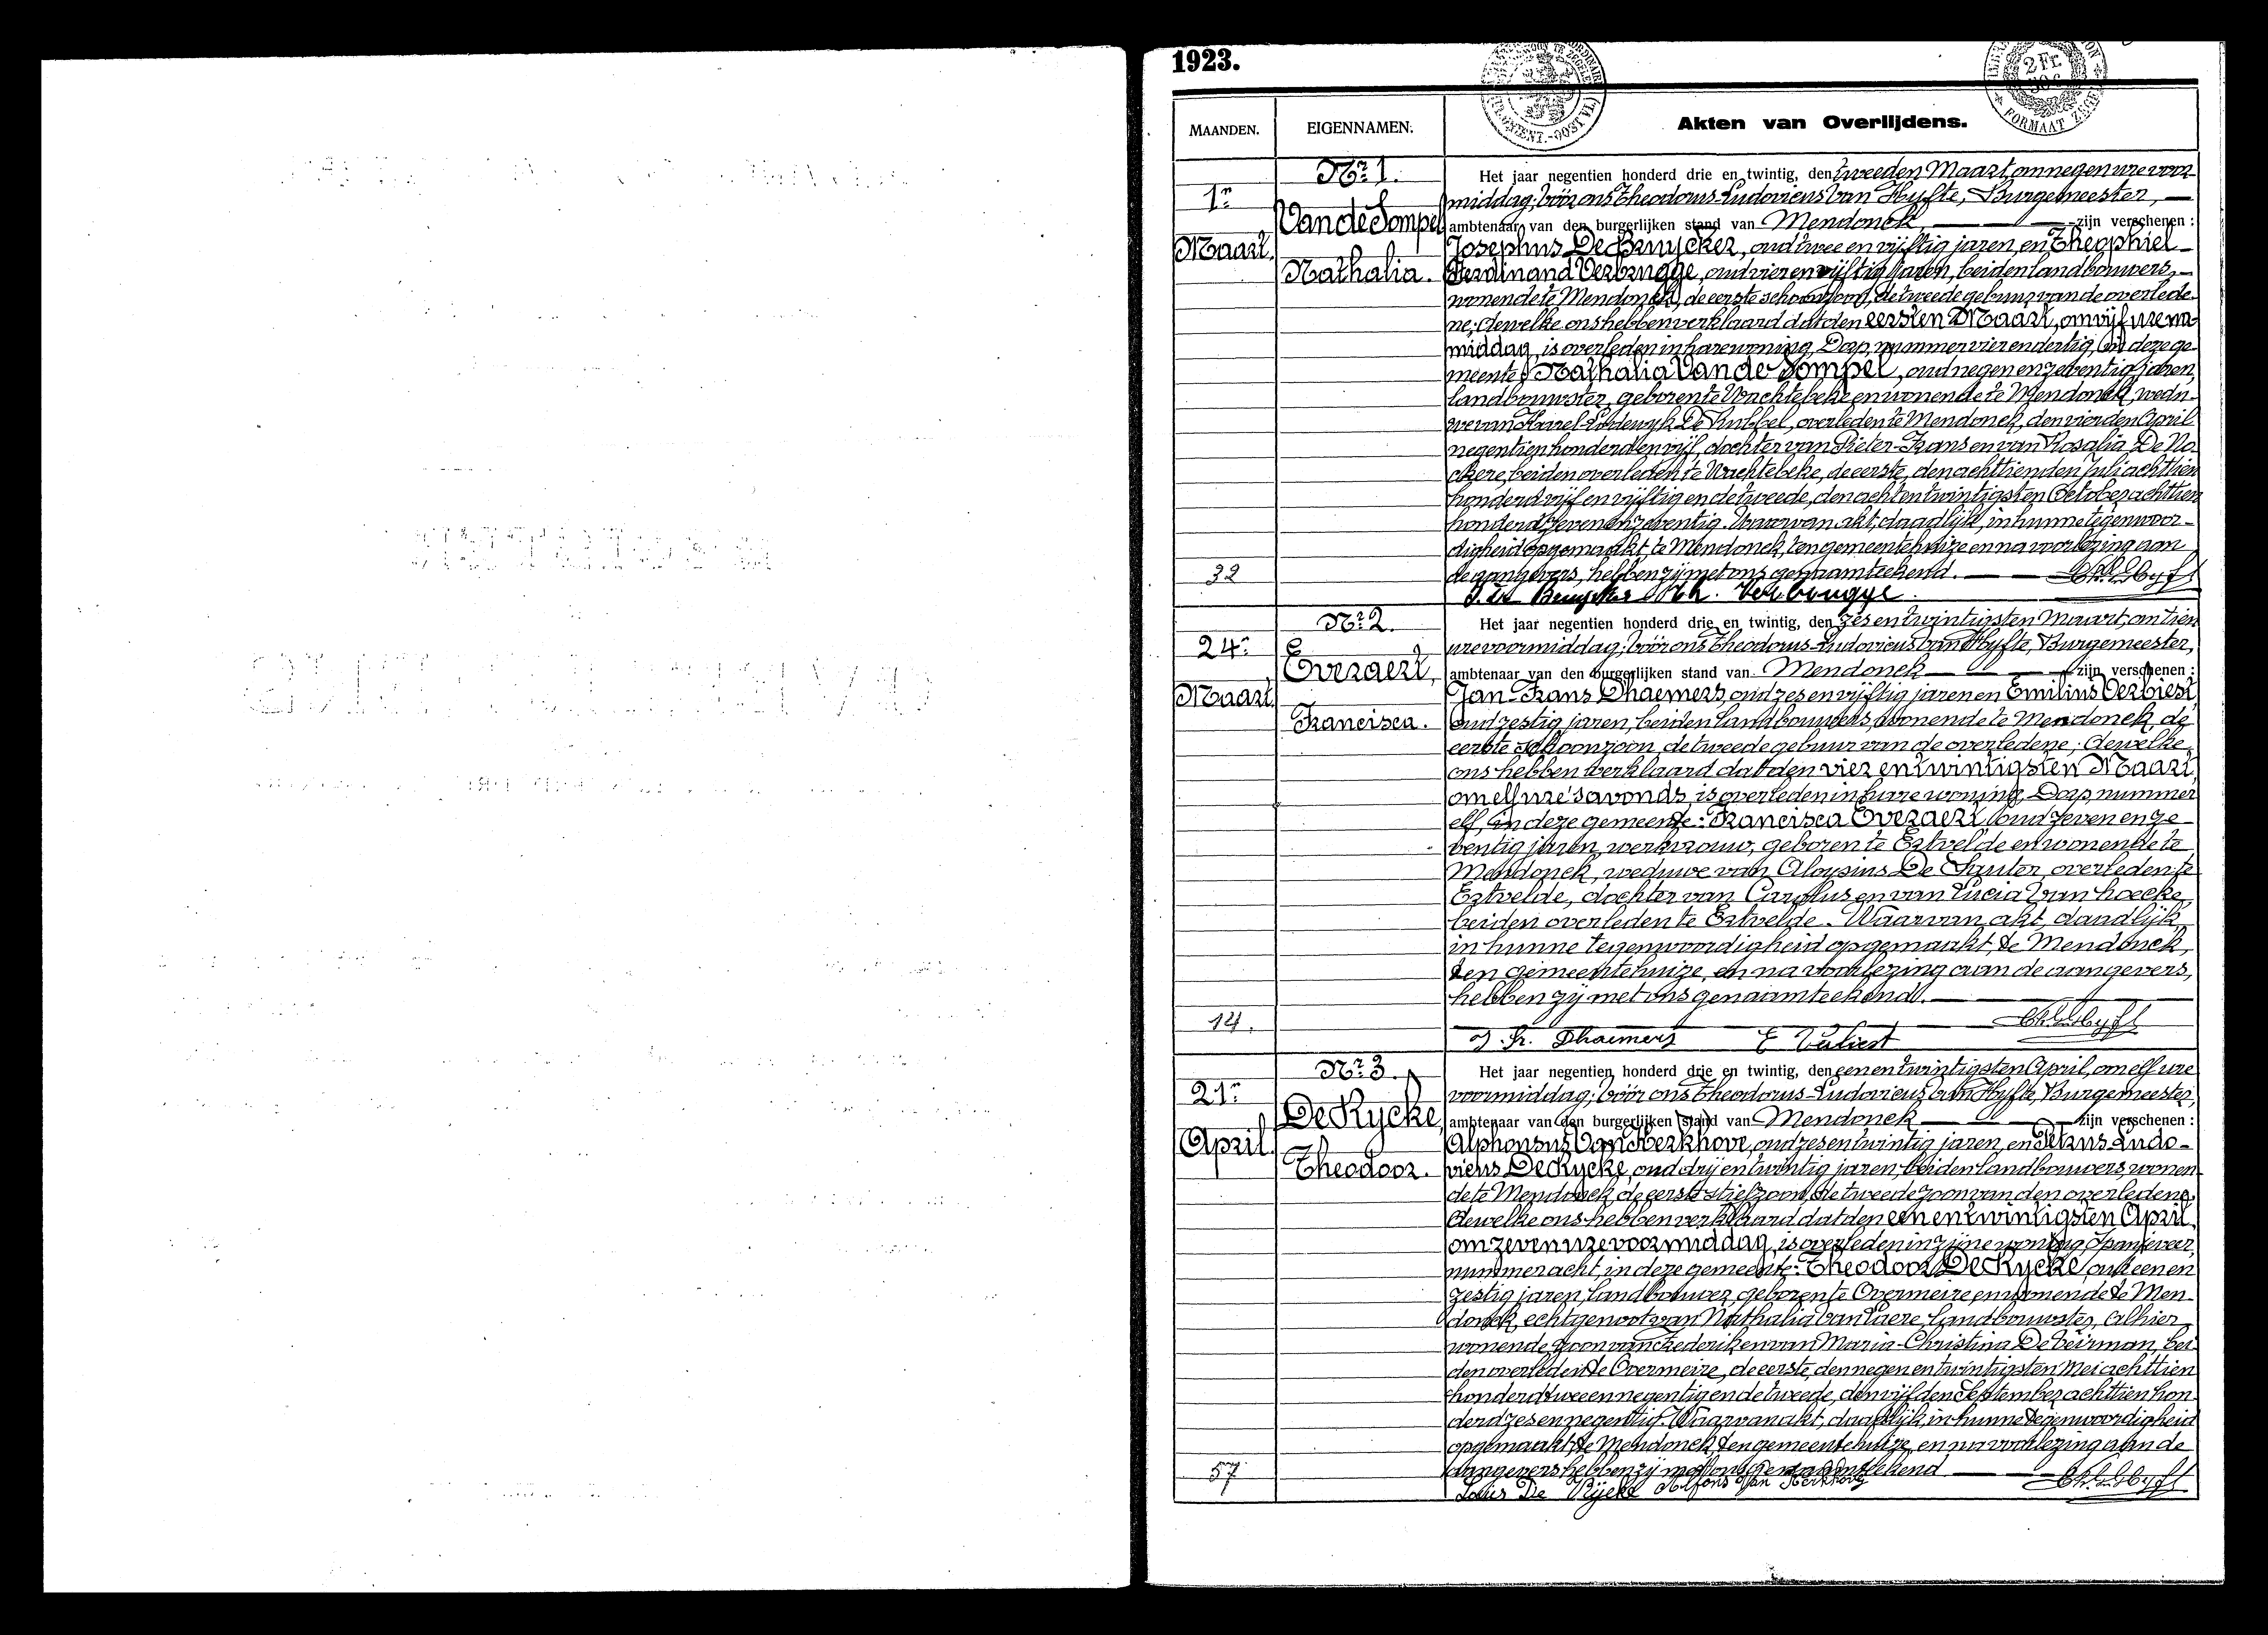 1923.
MAANDEN. EIGENNAMEN. Akten van Overlijdens.
2 Fr.
FORMAAT ZEGEL
Nr. 1. Het jaar negentien honderd drie en twintig, den tweeden Maart, om negen ure voor
1n middag; vóór ons Theodorus-Ludovicus Van Hyfte, Burgemeester,
Van de Sompel ambtenaar van den burgerlijken stand van Mendonck zijn verschenen :
Maart. Josephus De Bruycker, oud twee en vijftig jaren, en Theophiel
Nathalia. Ferdinand Verbrugge, oud vier en vijftig jaren, beiden landbouwers,
wonende te Mendonck, de eerste schoonzoon, de tweede gebuur van de overlede-
ne; dewelke ons hebben verklaard dat den eersten Maart, om vijf ure na-
middag, is overleden in hare woning, Dorp, nummer vier en dertig, in deze ge-
meente: Nathalia Van de Sompel, oud negen en zeventig jaren,
landbouwster, geboren te Wachtebeke en wonende te Mendonck, wedu-
we van Karel-Lodewyk De Kubbel, overleden te Mendonck, den vierden April
negentien honderd en vijf, dochter van Pieter-Frans en van Rosalia De No-
ckere, beiden overleden te Wachtebeke, de eerste, den achttienden Juli achttien
honderd vijf en vijftig en de tweede, den acht en twintigsten October achttien
honderd zeven en zeventig. Waarvan akt, daadlijk, in hunne tegenwoor-
digheid opgemaakt, te Mendonck, ten gemeentehuize en na voorlezing aan
32 de aangevers, hebben zij met ons genaamteekend.
J. De Bruycker Th. Verbrugge
Nr. 2. Het jaar negentien honderd drie en twintig, den zes en twintigsten Maart, om tien
24n ure voormiddag; vóór ons Theodorus-Ludovicus Van Hyfte, Burgemeester,
Everaert, ambtenaar van den burgerlijken stand van Mendonck zijn verschenen :
Maart. Jan-Frans Dhaemers, oud zes en vijftig jaren en Emilius Verbiest,
Francisca. oud zestig jaren, beiden landbouwers, wonende te Mendonck, de
eerste schoonzoon, de tweede gebuur van de overledene; dewelke
ons hebben verklaard dat den vier en twintigsten Maart,
om elf ure 's avonds, is overleden in hare woning, Dorp, nummer
elf, in deze gemeente: Francisca Everaert, oud zeven en ze-
ventig jaren, werkvrouw, geboren te Ertvelde en wonende te
Mendonck, weduwe van Aloysius De Sauter, overleden te
Ertvelde, dochter van Carolus en van Lucia Van hoecke,
beiden overleden te Ertvelde. Waarvan akt, daadlijk,
in hunne tegenwoordigheid opgemaakt, te Mendonck,
ten gemeentehuize, en na voorlezing aan de aangevers,
hebben zij met ons genaamteekend.
14.
J. Fr. Dhaemers E Verbiest
Nr. 3. Het jaar negentien honderd drie en twintig, den een en twintigsten April, om elf ure
21n voormiddag; vóór ons Theodorus-Ludovicus Van Hyfte, Burgemeester,
De Rycke, ambtenaar van den burgerlijken stand van Mendonck zijn verschenen :
April. Alphonsus Van Kerkhove, oud zes en twintig jaren, en Petrus-Ludo-
Theodoor. vicus De Rycke, oud drij en twintig jaren, beiden landbouwers, wonen-
de te Mendonck, de eerste stiefzoon, de tweede zoon van den overledene,
dewelke ons hebben verklaard dat den een en twintigsten April,
om zeven ure voormiddag, is overleden in zijne woning, Spanjeveer,
nummer acht, in deze gemeente: Theodoor De Rycke, oud een en
zestig jaren, landbouwer, geboren te Overmeire, en wonende te Men-
donck, echtgenoot van Nathalia Van Laere, landbouwster, alhier
wonende, zoon van Frederik en van Maria-Christina De Veirman, bei-
den overleden te Overmeire, de eerste, den negen en twintigsten Mei achttien
honderd twee en negentig en de tweede, den vijfden September achttien hon-
derd zes en negentig. Waarvan akt, daadlijk, in hunne tegenwoordigheid
opgemaakt, te Mendonck, ten gemeentehuize, en na voorlezing aan de
57 aangevers hebben zij met ons genaamteekend
Louis De Rijcke Alfons Van Kerkhove